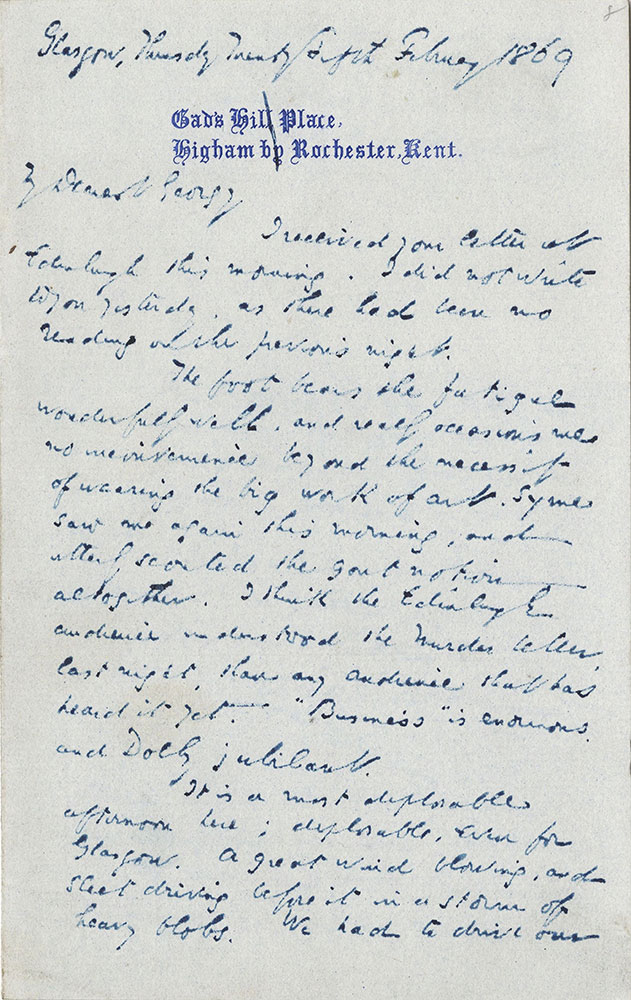 8
Glasgow, Thursday Twenty Fifth February 1869
Gad's Hill Place,
Higham by Rochester, Kent.
My Dearest Georgy
I received your letter at
Edinburgh this morning. I did not write
to you yesterday, as there had been no
reading on the previous night.
The foot bears the fatigue
wonderfully well, and really occasions me
no inconvenience beyond the necessity
of wearing the big work of art. Syme
saw me again this morning, and
utterly scouted the gout notion
altogether. I think the Edinburgh
audience understood the Murder better
last night, than any audience that has
heard it yet. "Business" is enormous,
and Dolby jubilant.
It is a most deplorable
afternoon here; deplorable, even for
Glasgow. A great wind blowing, and
sleet driving before it in a storm of
heavy blobs. We had to drive our